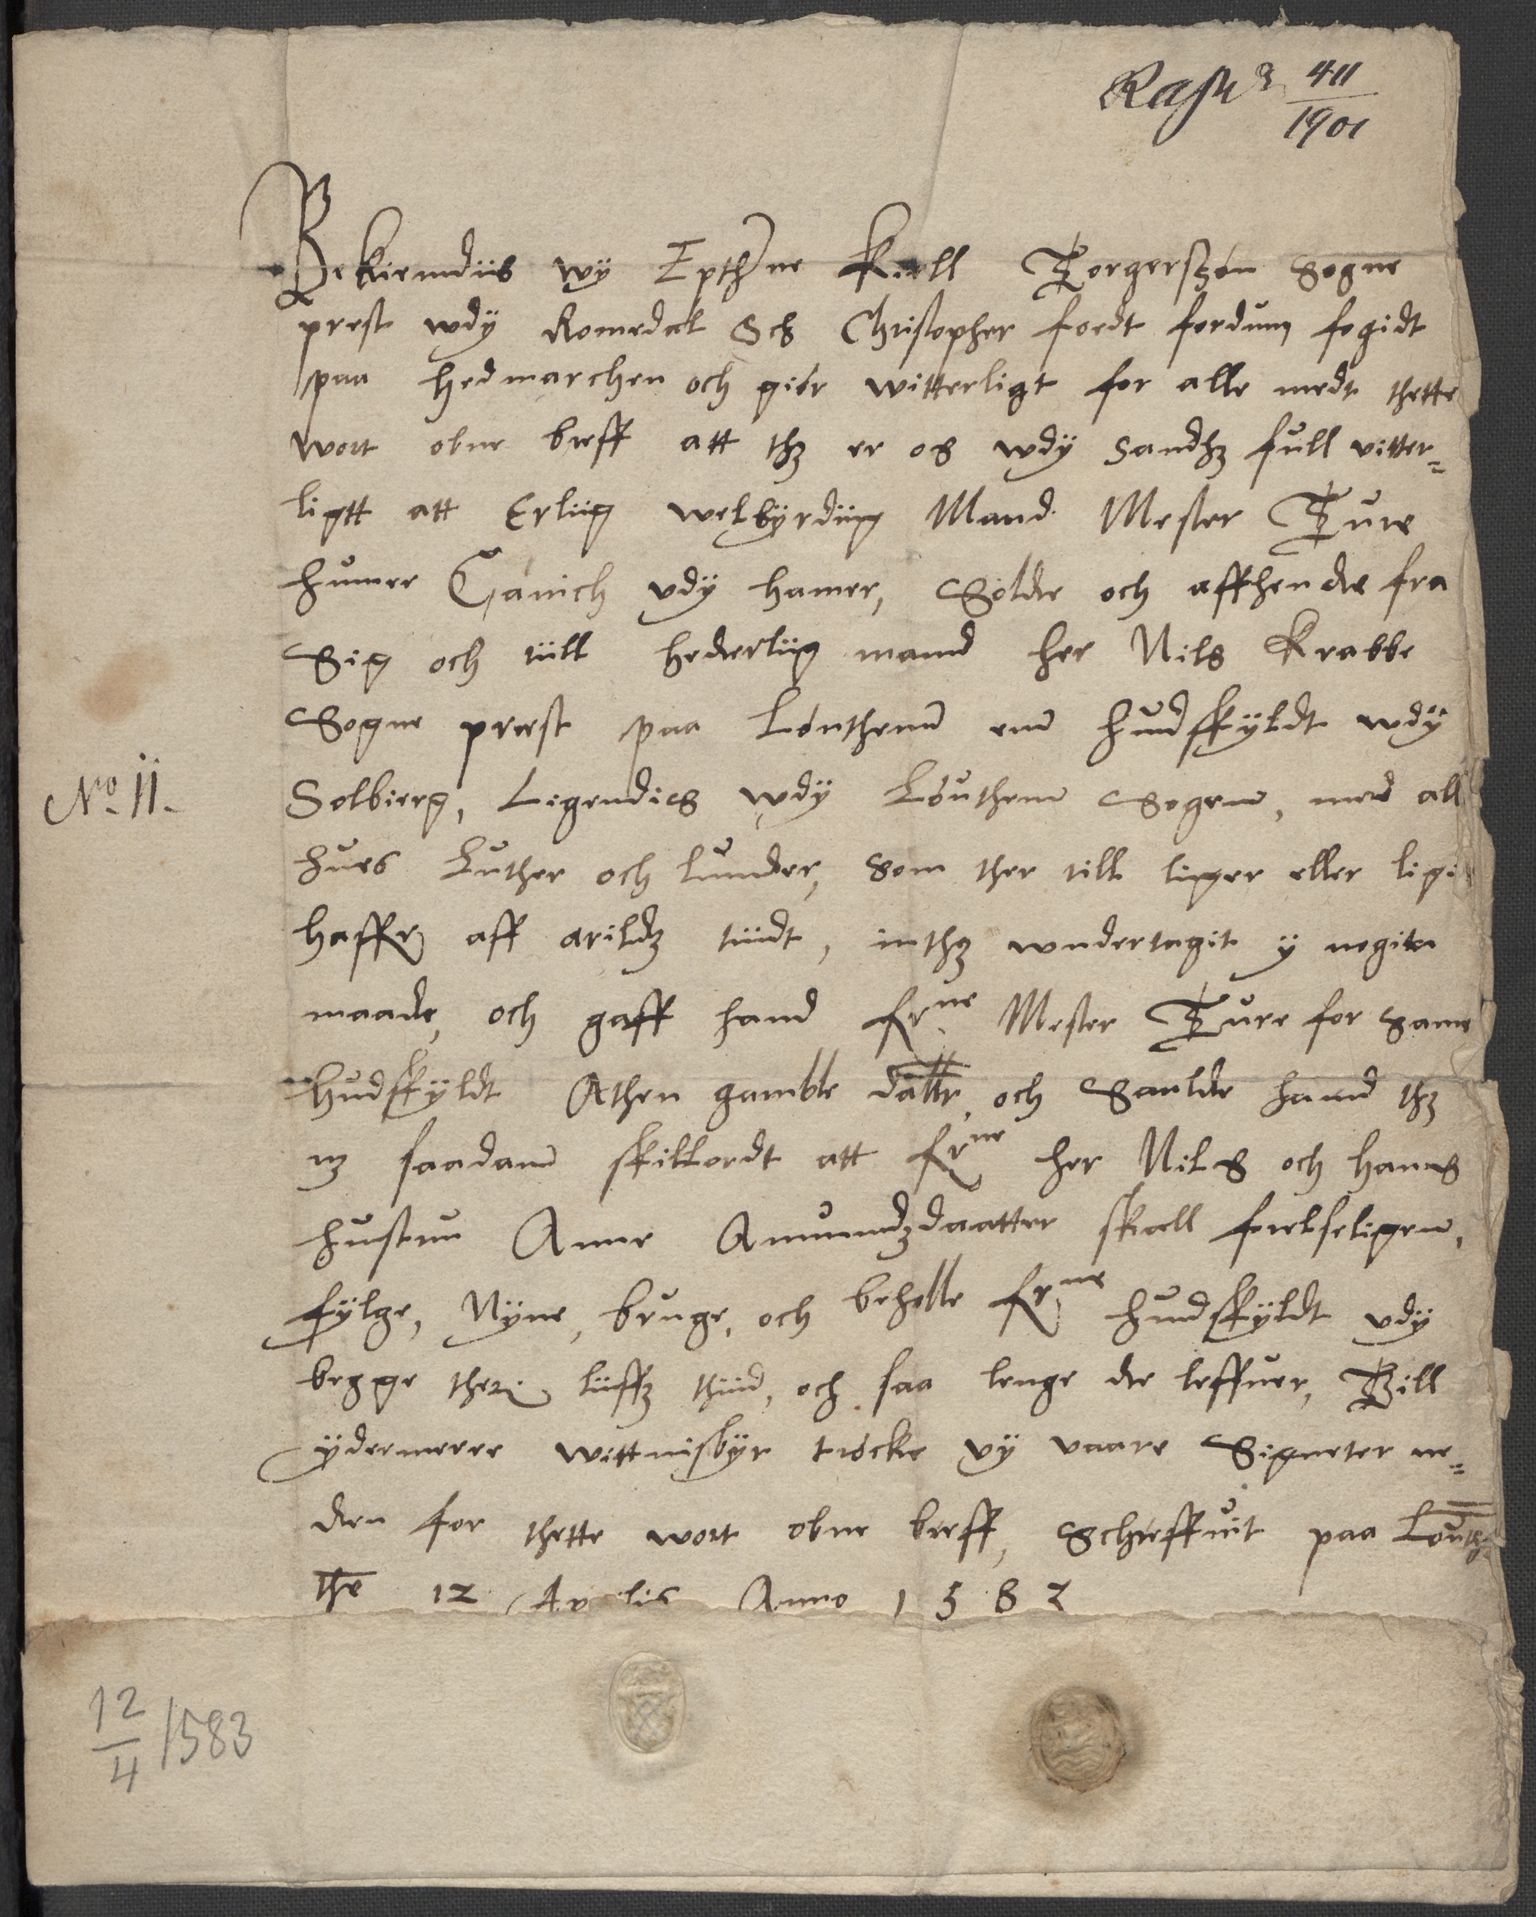 RA. 411
1901
Bekiendiis wy Epthne Kield Torgerszøn Sogne
prest wdy Romedal Sch Christopher foedt fordum fogidt
paa Hedmarchen och giør witterligt for alle medt thette
wort obne breff att thz er os wdy Sandhz full vitter-
ligtt att Erliig welbyrdiig Mand Mester Ture
Canich vdy hamer, Solde och affhende fra
Sig och till hederliig mand her Nils Krabbe
Sogne prest paa Lønthenn enn hudskyldt wdy
Solbierg, Ligendies wdy Løuthenn Sogenn, med all
hues Luther och Lunder, Som ther till liger eller ligit
haffr aff arildz tiidt, inthz wndertagit y nogitn
maade, och gaff hand frne Mester Ture for Same
Hudskyldt Athen gamble daller, och Saulde hand thz
mz saadann skillordt att frne her Nils och hans
hustru Anne Amundzdaatter skall frelseligenn,
fylge, Nyne, bruge, och beholle frne hudskyldt vdy
begge theris liiffz thiid, och saa lenge de leffuer, Till
ydermere wittnisbyr trøcke vy vaare Signeter ne-
den for thette wort obne breff, Schreffuit paa Løuth
the 12 Aprilis Anno 1583
No 11.
12
4 /1583